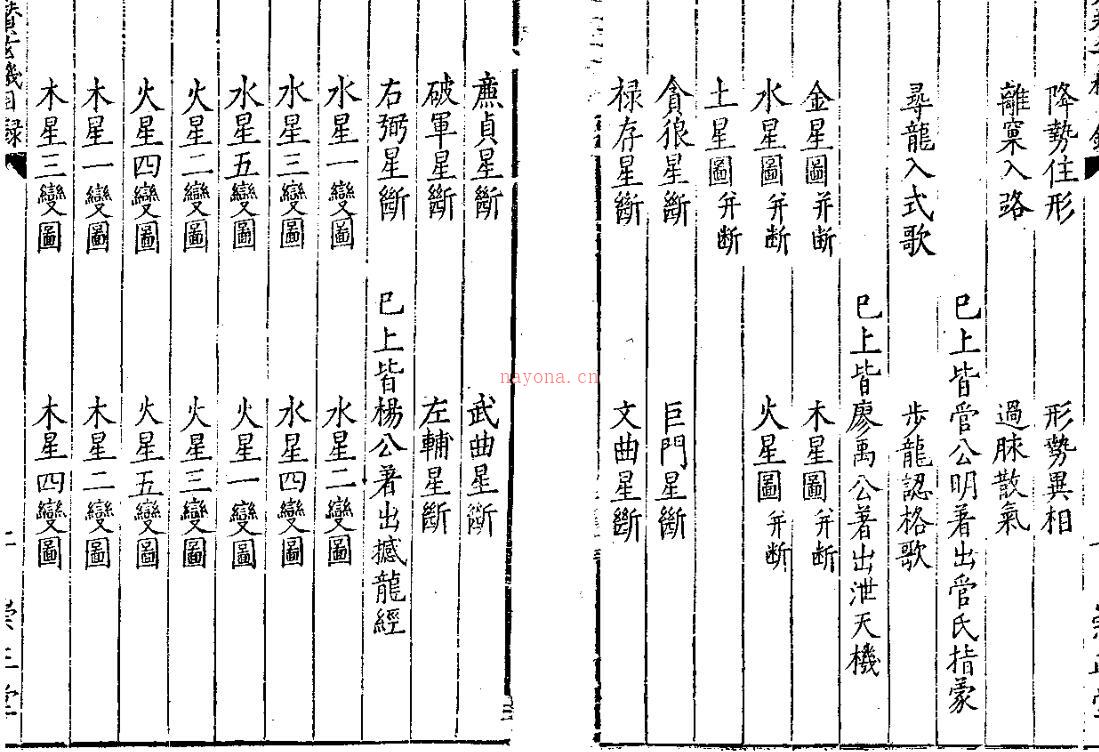 降勢住形　形勢異相
離窠入路　過脉散氣
巳上皆管公明著出管氏指蒙
尋龍入式歌　步龍認格歌
巳上皆廖禹公著出泄天機
金星圖并断　木星圖并断
水星圖并断　火星圖并断
土星圖并断
貪狼星斷　巨門星斷
禄存星斷　文曲星斷
nayona.cn
廉貞星斷　武曲星斷
破軍星斷　左輔星斷
右弼星斷
巳上皆楊公著出撼龍經
水星一變圖　水星二變圖
水星三變圖　水星四變圖
水星五變圖　火星一變圖
火星二變圖　火星三變圖
火星四變圖　火星五變圖
木星一變圖　木星二變圖
木星三變圖　木星四變圖
玄機目録